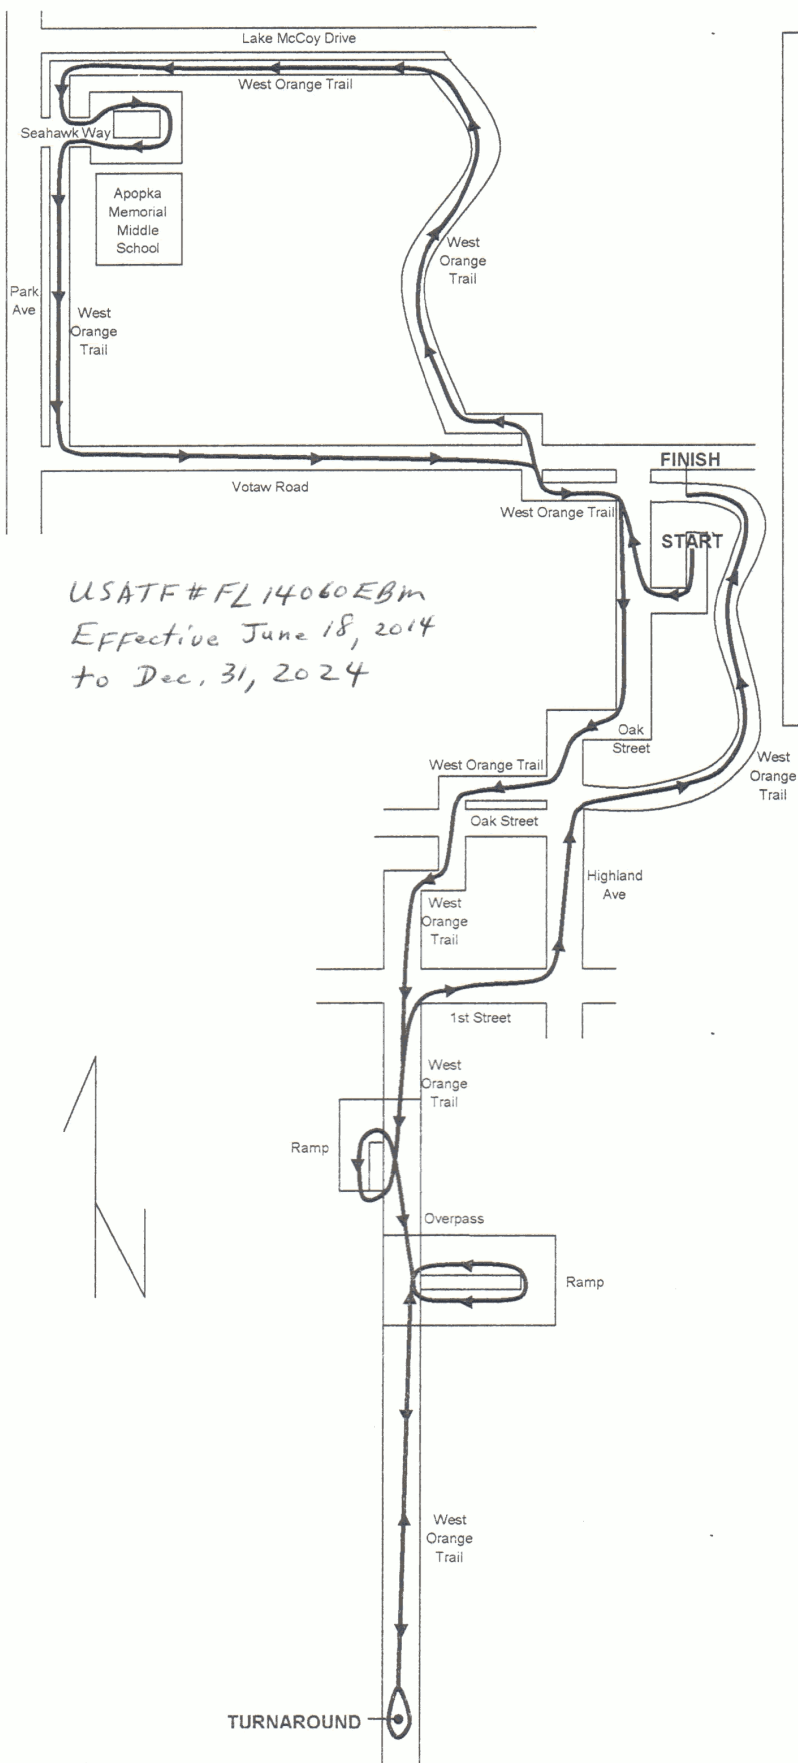 Lake McCoy Drive
West Orange Trail
Seahawk Way
Apopka
Memorial
Middle
School
West
Orange
Trail
Park
Ave
West
Orange
Trail
FINISH
Votaw Road
West Orange Trail
START
USATF # FL 14060EBm
Effective June 18, 2014
to Dec. 31, 2024
Oak
Street
West Orange Trail
West
Orange
Trail
Oak Street
Highland
Ave
West
Orange
Trail
1st Street
West
Orange
Trail
Ramp
Overpass
Ramp
West
Orange
Trail
TURNAROUND